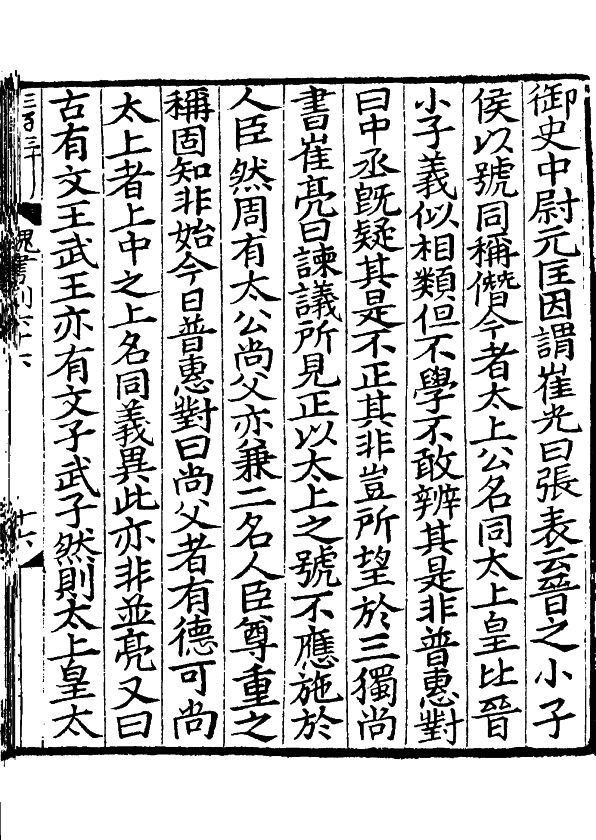 御史中尉元匡因謂崔光曰張表云晉之小子
侯以號同稱僭今者太上公名同太上皇比晉
小子義似相類但不學不敢辨其是非普惠對
曰中丞旣疑其是不正其非豈所望於三獨尚
書崔亮曰諫議所見正以太上之號不應施於
人臣然周有太公尚父亦兼二名人臣尊重之
稱固知非始今日普惠對曰尚父者有德可尚
太上者上中之上名同義異此亦非並亮又曰
古有文王武王亦有文子武子然則太上皇太
魏書列六十六
十六